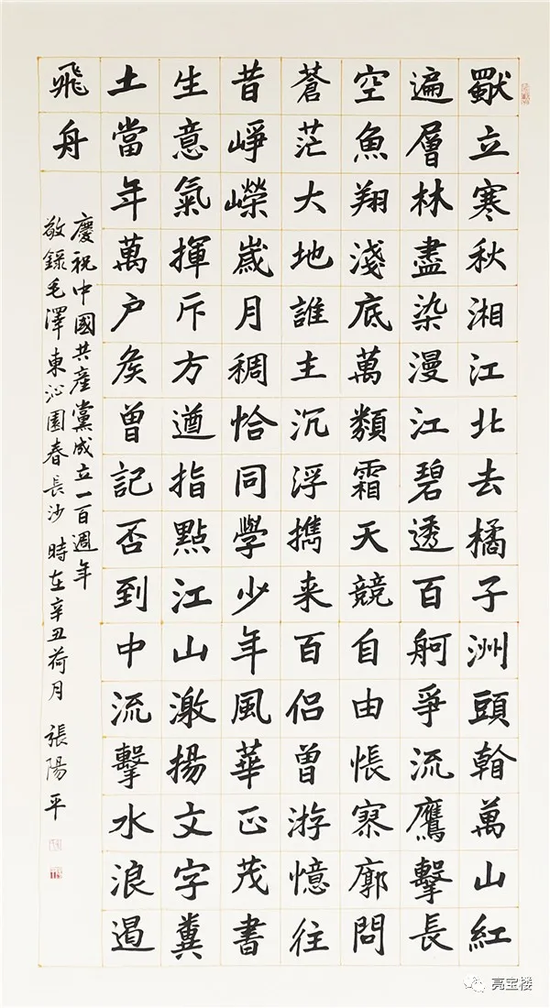 獨立寒秋湘江北去橘子洲頭看萬山紅
遍層林盡染漫江碧透百舸爭流鷹擊長
空魚翔淺底萬類霜天競自由悵寥廓問
蒼茫大地誰主沉浮携来百侶曾游憶往
昔崢嶸歲月稠恰同學少年風華正茂書
生意氣揮斥方遒指點江山激揚文字糞
土當年萬户矦曾記否到中流擊水浪遏
飛舟
慶祝中國共產黨成立一百週年
敬録毛澤東沁園春長沙 時在辛丑荷月 張陽平
亮宝楼